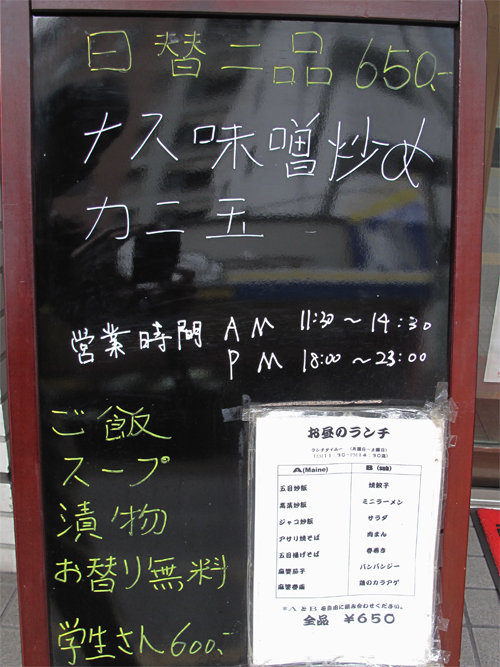 日替二品 650.-
ナス味噌炒め
カニ玉
営業時間 AM 11:30～14:30
PM 18:00～23:00
ご飯
スープ
漬物
お替り無料
学生さん600.-
お昼のランチ
ランチタイム (月曜日~土曜日)
A(Maine) B (sub)
五目炒飯 焼餃子
高菜炒飯 ミニラーメン
ジャコ炒飯 サラダ
アサリ焼そば 肉まん
五目揚げそば 春巻き
麻婆茄子 バンバンジー
麻婆春雨 鶏のカラアゲ
※A と B を自由に組み合わせください。
全品 ¥650